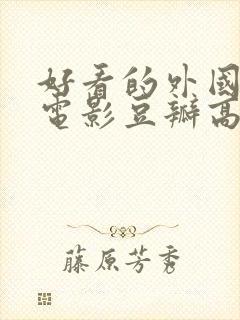 好看的外國
電影豆瓣高
藤原芳秀